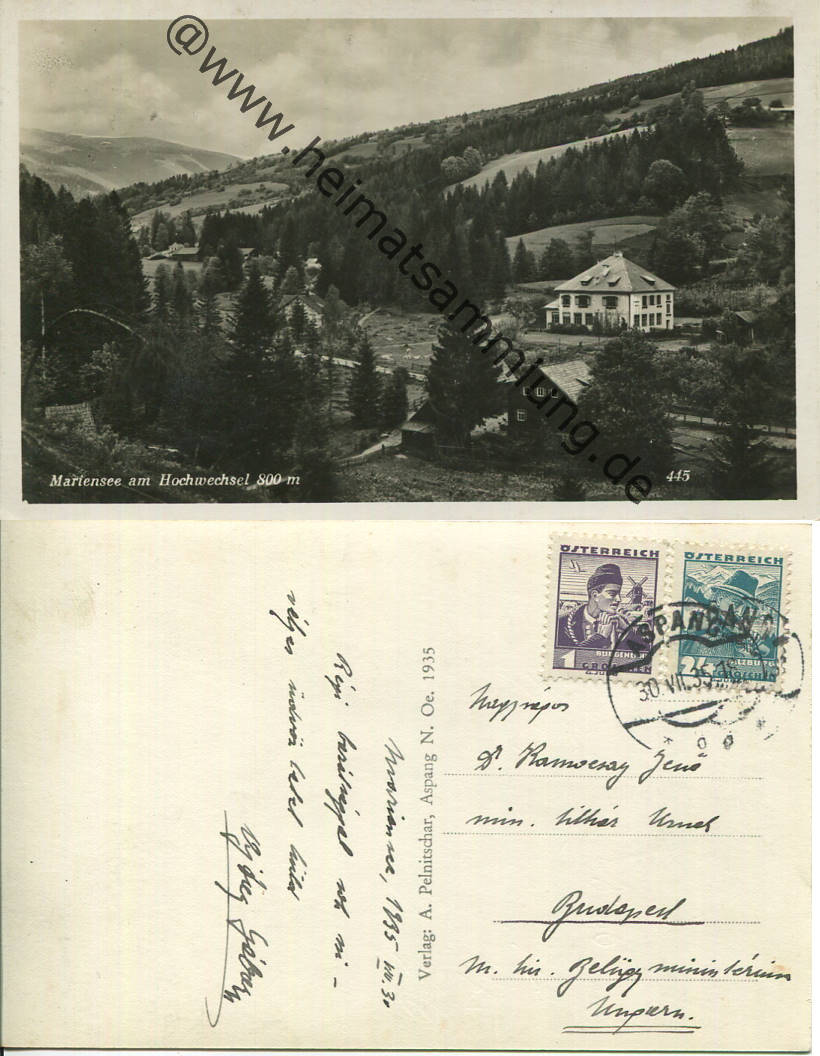 @www.heimatsammlung.de
Mariensee am Hochwechsel 800 m
445
ÖSTERREICH
BURGENLAND
1 GROSCHEN
ÖSTERREICH
SALZBURG
GROSCHEN
ASPANG
30.VII.35
Verlag: A. Pelnitschar, Aspang N. Oe. 1935
Mariensee, 1935 VII. 30
Régi barátsággal sok szi-
vélyes üdvözletet küld
Gábor
Nagyságos
Dr. Ramocsay Jenő
min. titkár Urnak
Budapest
M. kir. Belügyminisztérium
Ungarn.